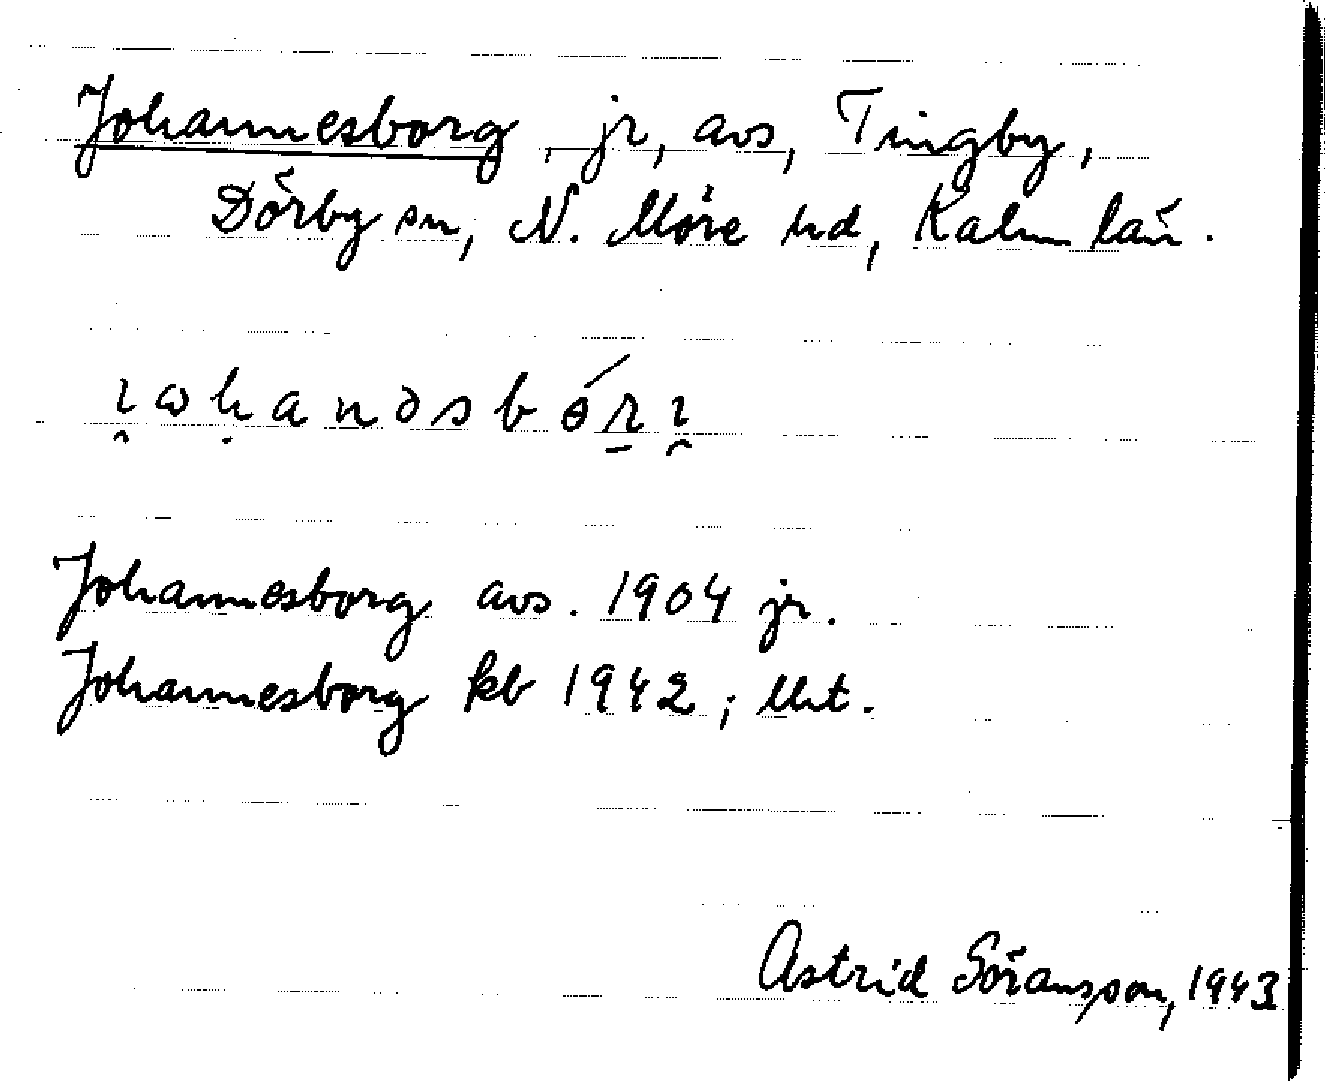 Johannesborg, jr, avs, Tingby,
Dörby sn, N. Möre hd, Kalm län.
Johannesborg avs. 1904 jr.
Johannesborg kb 1942; Uht.
Astrid Göransson, 1943